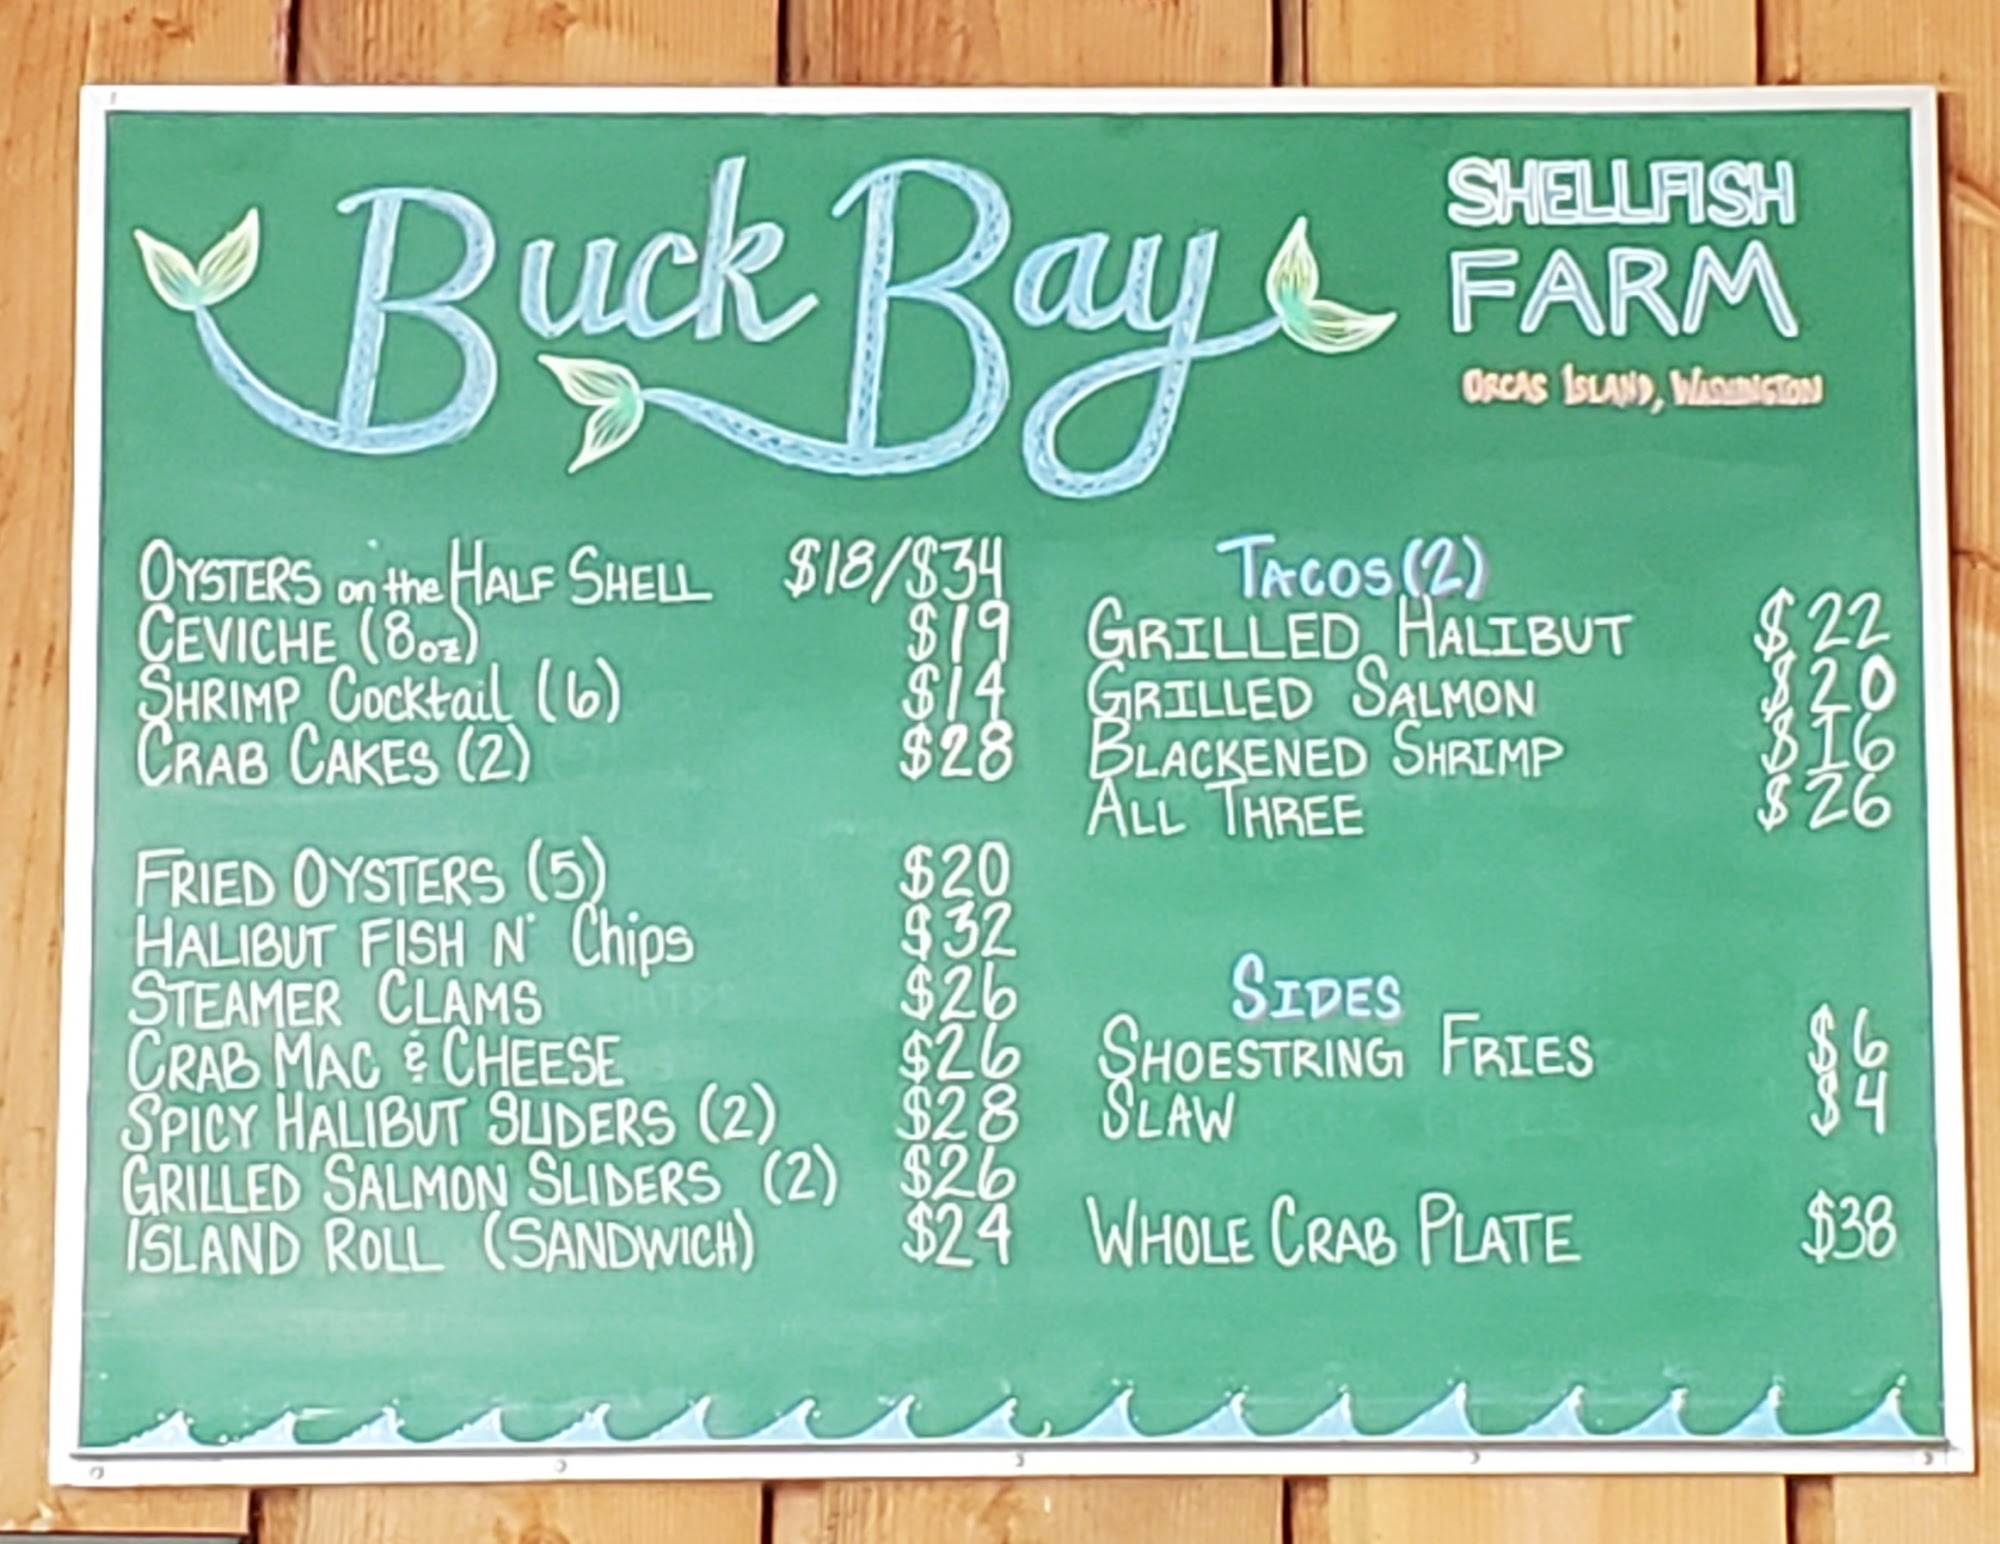 Buck Bay
SHELLFISH
FARM
ORCAS ISLAND, WASHINGTON
OYSTERS on the HALF SHELL $18/$34
CEVICHE (8oz) $19
SHRIMP Cocktail (6) $14
CRAB CAKES (2) $28
FRIED OYSTERS (5) $20
HALIBUT FISH N' Chips $32
STEAMER CLAMS $26
CRAB MAC & CHEESE $26
SPICY HALIBUT SLIDERS (2) $28
GRILLED SALMON SLIDERS (2) $26
ISLAND ROLL (SANDWICH) $24
TACOS (2)
GRILLED HALIBUT $22
GRILLED SALMON $20
BLACKENED SHRIMP $16
ALL THREE $26
SIDES
SHOESTRING FRIES $6
SLAW $4
WHOLE CRAB PLATE $38